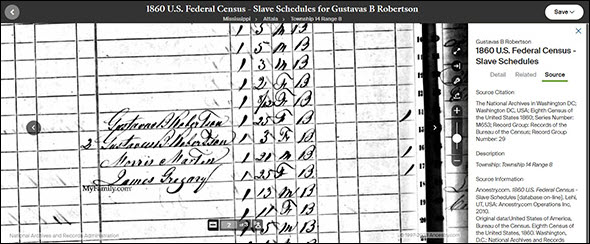 1860 U.S. Federal Census - Slave Schedules for Gustavas B Robertson
Mississippi > Attala > Township 14 Range 8
Save
1 5 m B
1 5 m B
1 3 m B
1 2 F B
1 3/12 F B
Gustavas B Robertson 1 25 F B 1
2 Gustavus B Robertson 1 3 F B
Morris Martin 1 21 m B 1
James Gregory 1 25 F B 1
1 13 m B
1 11 F B
MyFamily.com
National Archives and Records Administration
Ancestry.com
Gustavas B Robertson
1860 U.S. Federal Census - Slave Schedules
Detail Related Source
Source Citation
The National Archives in Washington DC;
Washington DC, USA; Eighth Census of
the United States 1860; Series Number:
M653; Record Group: Records of the
Bureau of the Census; Record Group
Number: 29
Description
Township: Township 14 Range 8
Source Information
Ancestry.com. 1860 U.S. Federal Census -
Slave Schedules [database on-line]. Lehi,
UT, USA: Ancestry.com Operations Inc,
2010.
Original data: United States of America,
Bureau of the Census. Eighth Census of
the United States, 1860. Washington,
D.C.: National Archives and Records